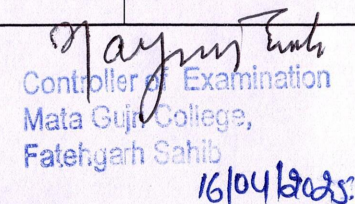 Controller of Examination
Mata Gujri College,
Fatehgarh Sahib
16/04/2025